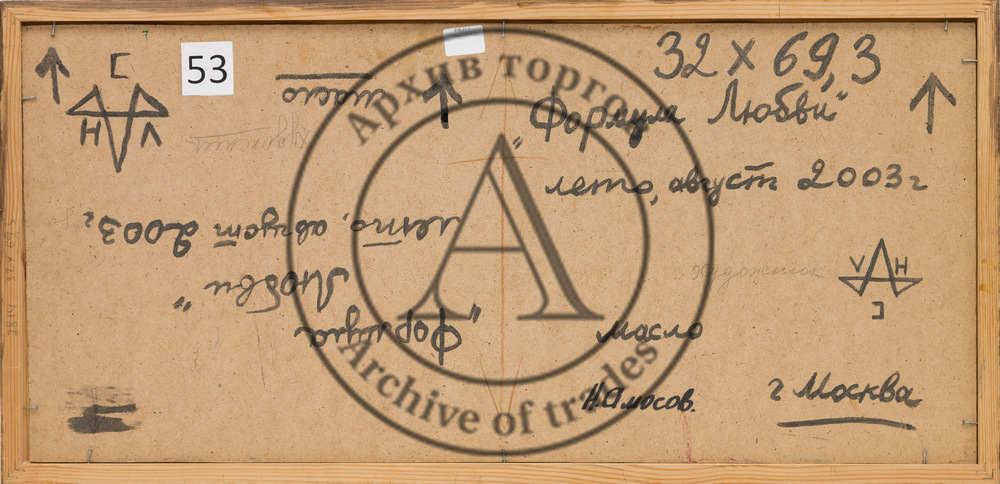 53
32 х 69,3
"Формула Любви"
лето, август 2003 г
художник
V Н
масло
Н.Амосов.
г Москва
масло
художник
И V
лето, август 2003 г
"Формула
Любви"
Архив торгов
A
Archive of trades